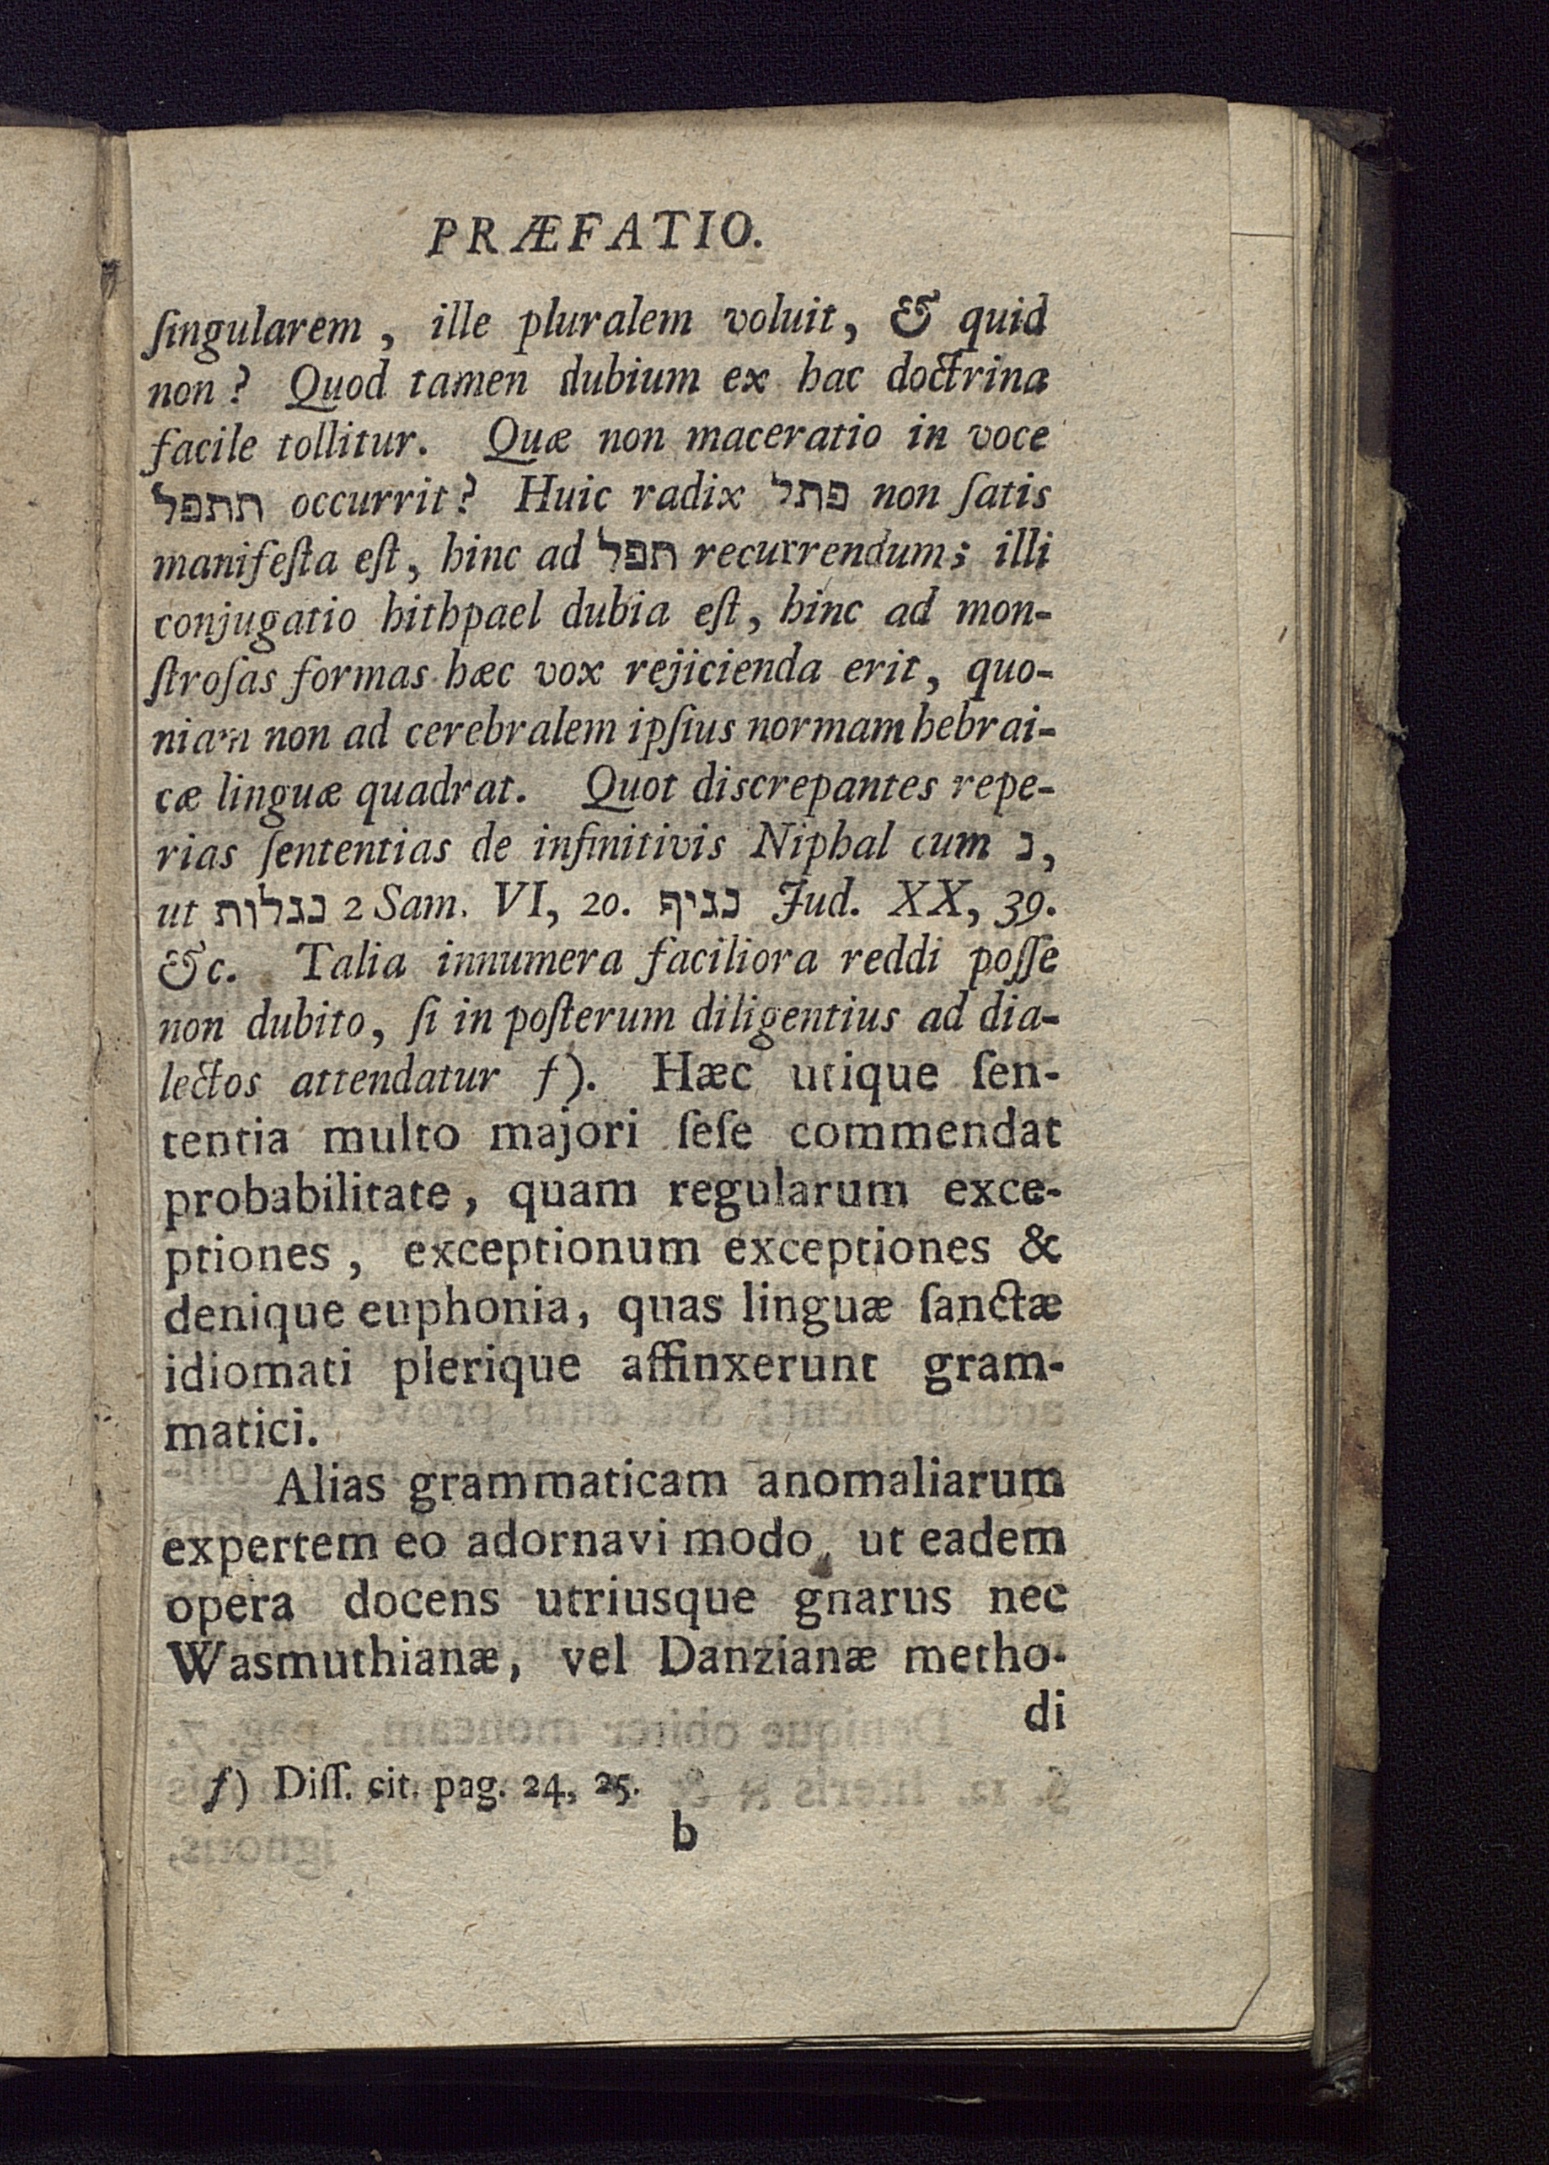 PRÆFATIO.
ſingularem, ille pluralem voluit, & quid
non? Quod tamen dubium ex hac doctrina
facile tollitur. Quæ non maceratio in voce
תתפל occurrit? Huic radix פתל non ſatis
manifeſta eſt, hinc ad תפל recurrendum; illi
conjugatio hithpael dubia eſt, hinc ad mon-
ſtroſas formas hæc vox rejicienda erit, quo-
niam non ad cerebralem ipſius normam hebrai-
cæ linguæ quadrat. Quot discrepantes repe-
rias ſententias de infinitivis Niphal cum נ,
ut נגלות 2 Sam. VI, 20. נגיף Jud. XX, 39.
&c. Talia innumera faciliora reddi poſſe
non dubito, ſi in poſterum diligentius ad dia-
lectos attendatur f). Hæc utique ſen-
tentia multo majori ſeſe commendat
probabilitate, quam regularum exce-
ptiones, exceptionum exceptiones &
denique euphonia, quas linguæ ſanctæ
idiomati plerique affinxerunt gram-
matici.
Alias grammaticam anomaliarum
expertem eo adornavi modo, ut eadem
opera docens utriusque gnarus nec
Wasmuthianæ, vel Danzianæ metho-
di
f) Diſſ. cit. pag. 24, 25.
b